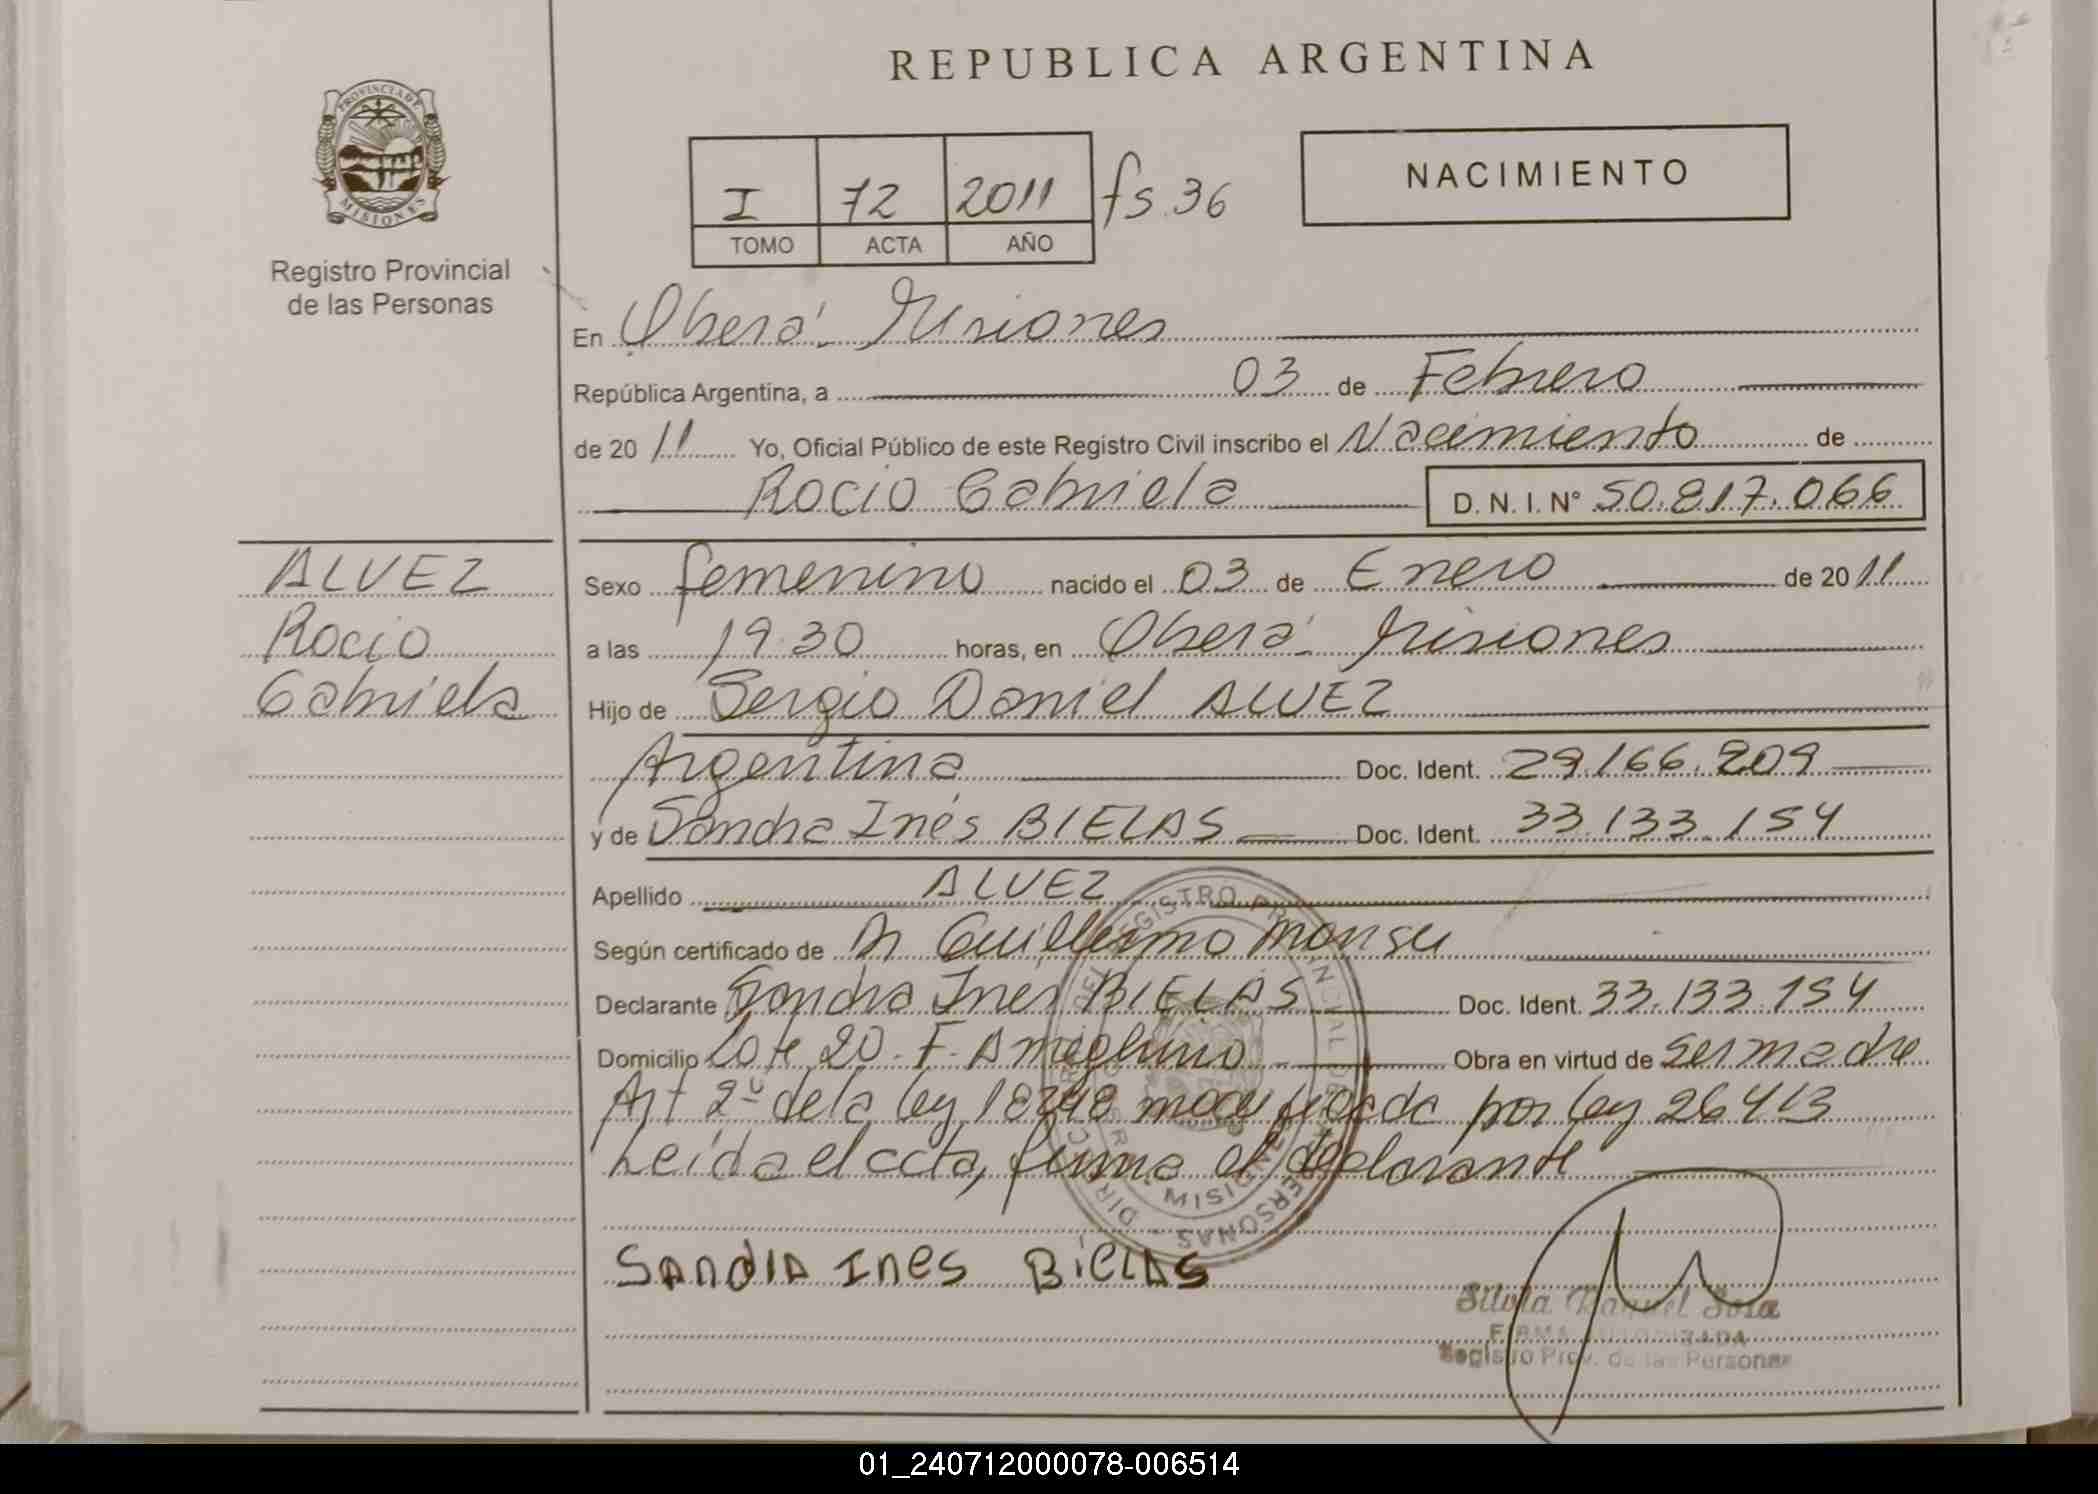 REPUBLICA ARGENTINA
PROVINCIA DE
MISIONES
Registro Provincial
de las Personas
I 72 2011 fs. 36
TOMO ACTA AÑO
NACIMIENTO
En Oberá - Misiones
República Argentina, a 03 de Febrero
de 20 11 Yo, Oficial Público de este Registro Civil inscribo el Nacimiento de
Rocio Gabriela D. N. I. N° 50.817.066
ALVEZ
Rocio
Gabriela
Sexo femenino nacido el 03 de Enero de 20 11
a las 19.30 horas, en Oberá - Misiones
Hijo de Sergio Daniel ALVEZ
Argentina Doc. Ident. 29.166.209
y de Sandra Inés BIELAS Doc. Ident. 33.133.154
Apellido ALVEZ
Según certificado de Dr Guillermo Monsu
Declarante Sandra Ines BIELAS Doc. Ident. 33.133.154
Domicilio Lote 20. F. Ameghino Obra en virtud de ser madre
Art 2º de la ley 18248 modificada por ley 26413
Leída el acta, firma el declarante
SANdRA INes BiELAS
Silvia Raquel Sosa
FIRMA AUTORIZADA
Registro Prov. de las Personas
01_240712000078-006514